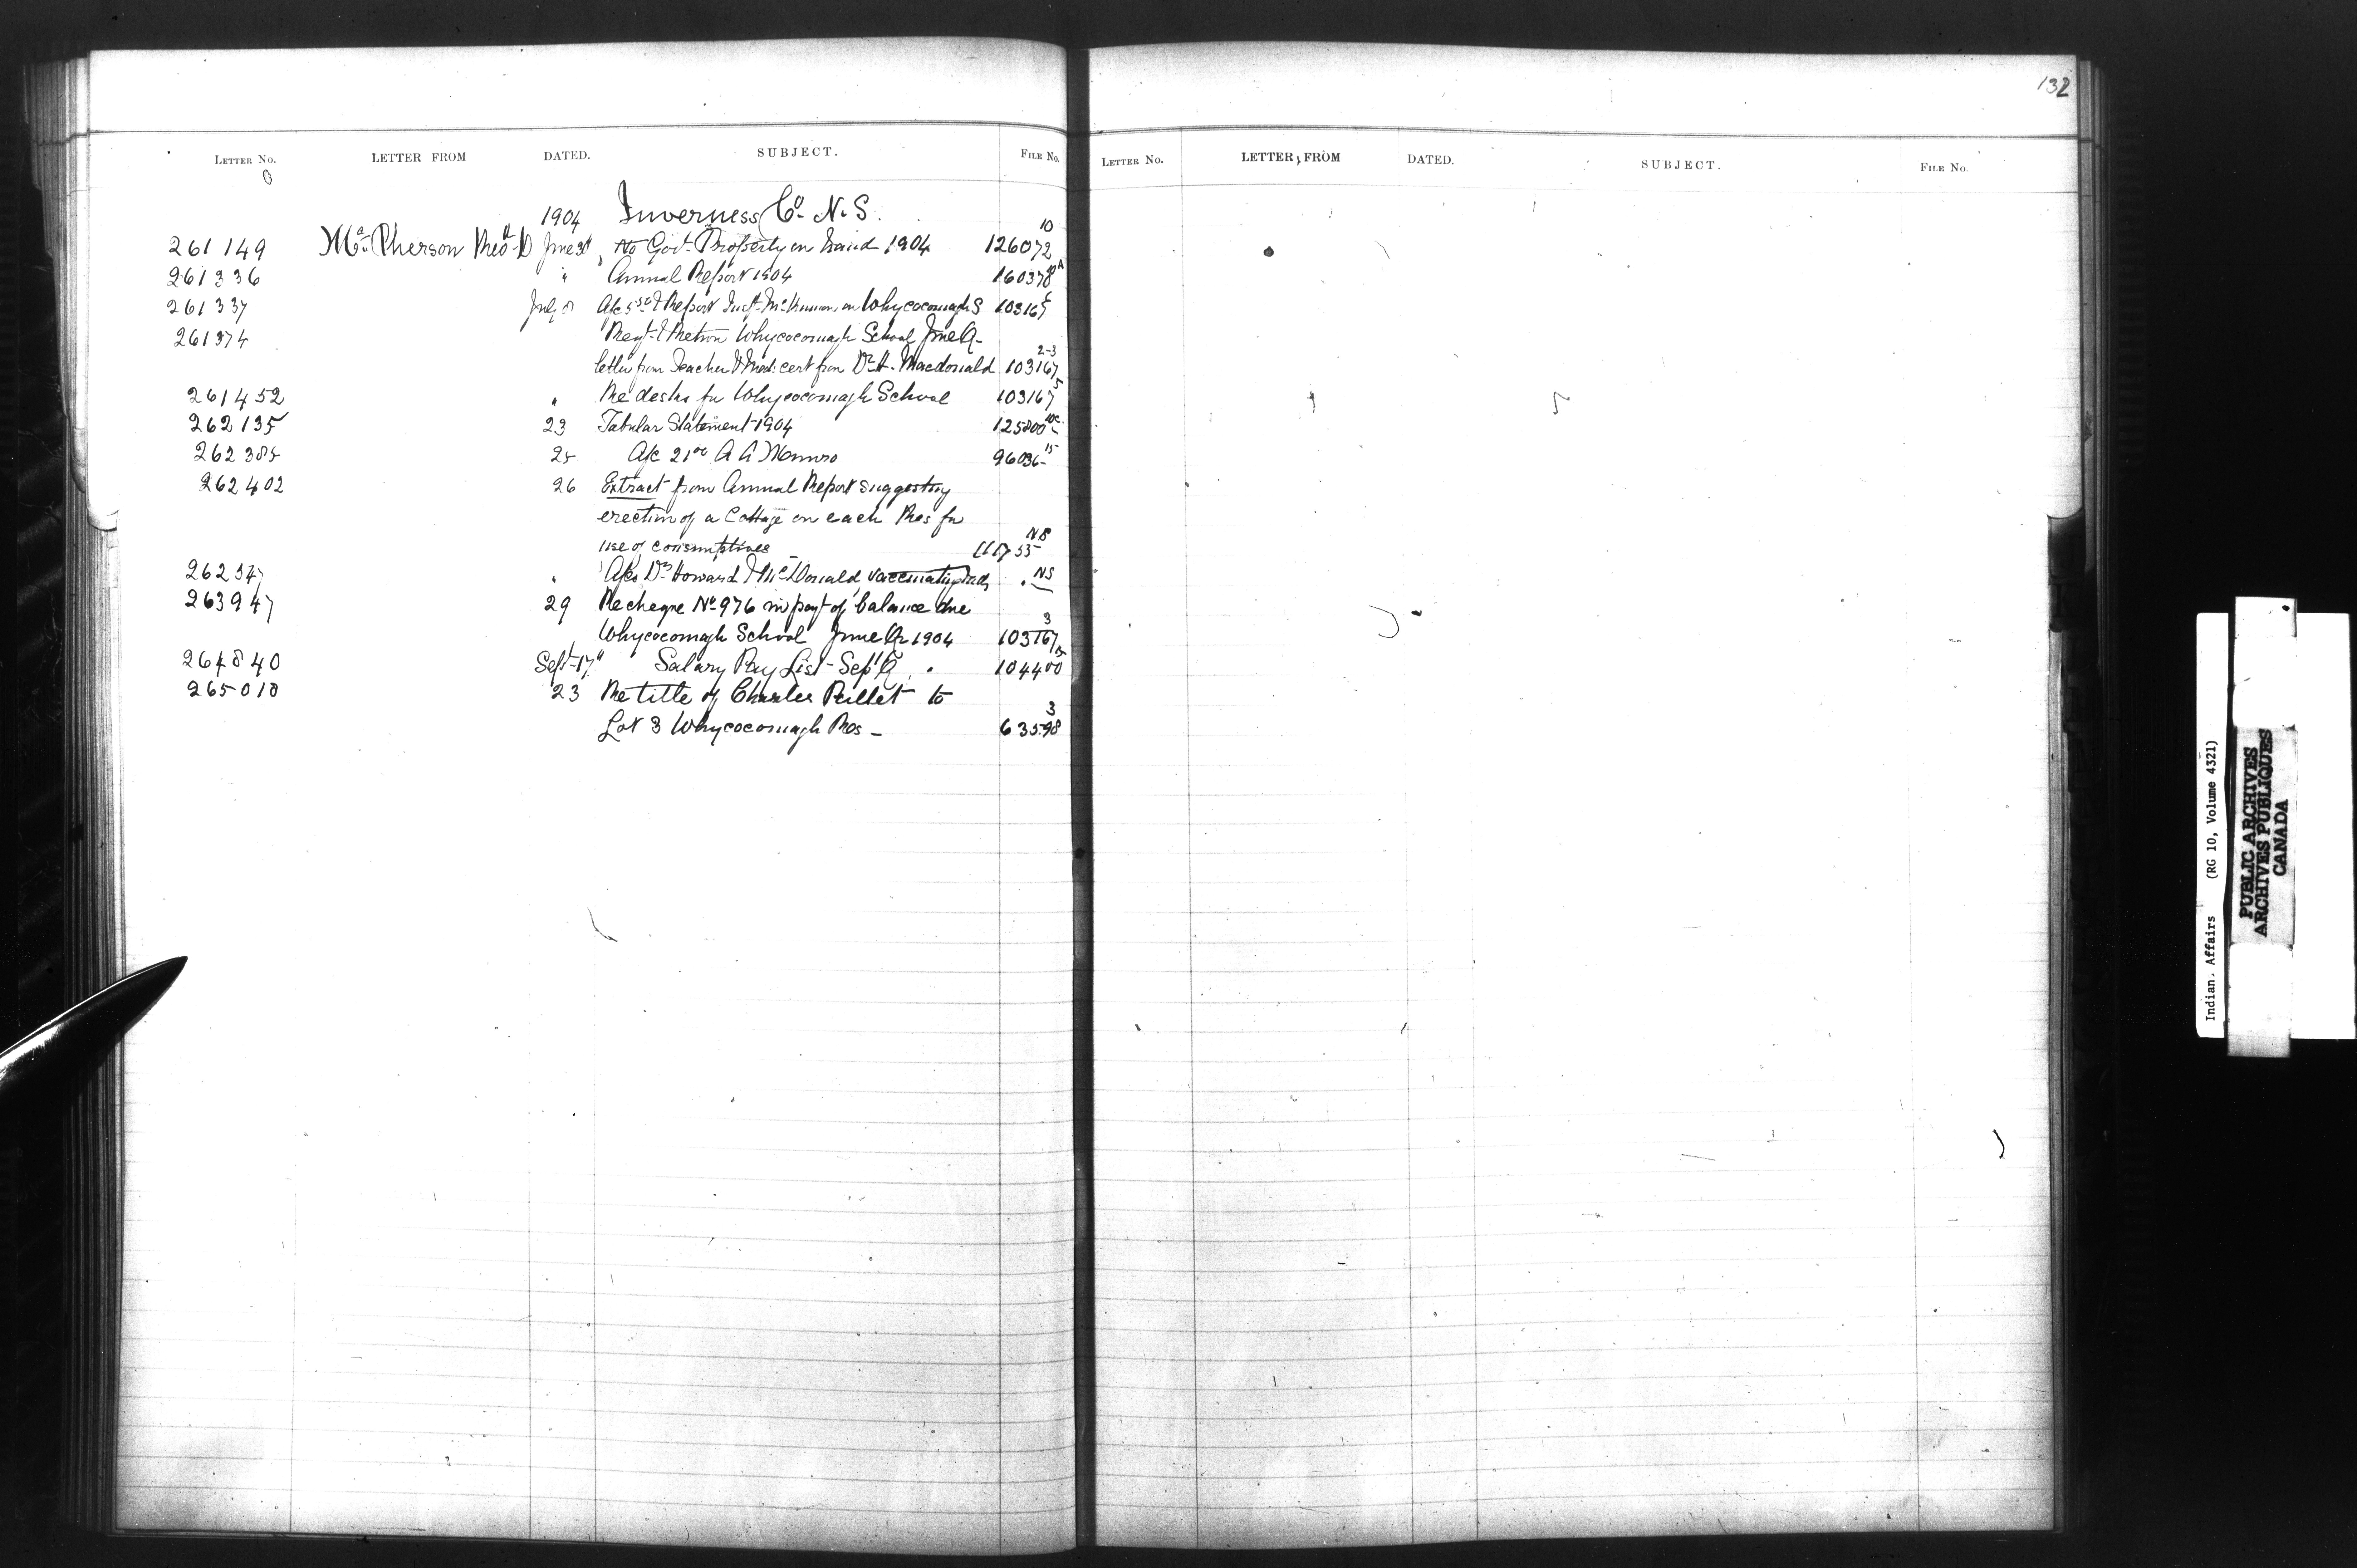 132
LETTER NO. LETTER FROM DATED. SUBJECT. FILE NO.
LETTER NO. LETTER FROM DATED. SUBJECT. FILE NO.
1904 Inverness Co. N.S.
261149 McPherson Revd D June No Govt Property on hand 1904 126072 10
261336 " Annual Report 1904 160378
261337 July 8 A/c & Report McKinnon on Whycocomagh S 103167
261374 Whycocomagh School June Q-
letter from Teacher & Med: cert from Dr H. Macdonald 103167 2-3
261452 " Re desks for Whycocomagh School 103167 5
262135 23 Tabular Statement 1904 125800
262385 25 A/c 21 00 A A Munro 96036 15
262402 26 Extract from Annual Report suggesting
erection of a Cottage on each Res for
use of consumptives NS
" A/cs Drs Howard & McDonald, vaccinating Inds, NS
263947 29 Re cheque No 976 in payt of balance due
Whycocomagh School June Qr 1904 103167 3
264840 Sept 17 Salary Pay List - Sept Q 104400
265018 23 Re title of Charles to
Lot 3 Whycocomagh Res - 63598 3
Indian Affairs (RG 10, Volume 4321)
PUBLIC ARCHIVES
ARCHIVES PUBLIQUES
CANADA